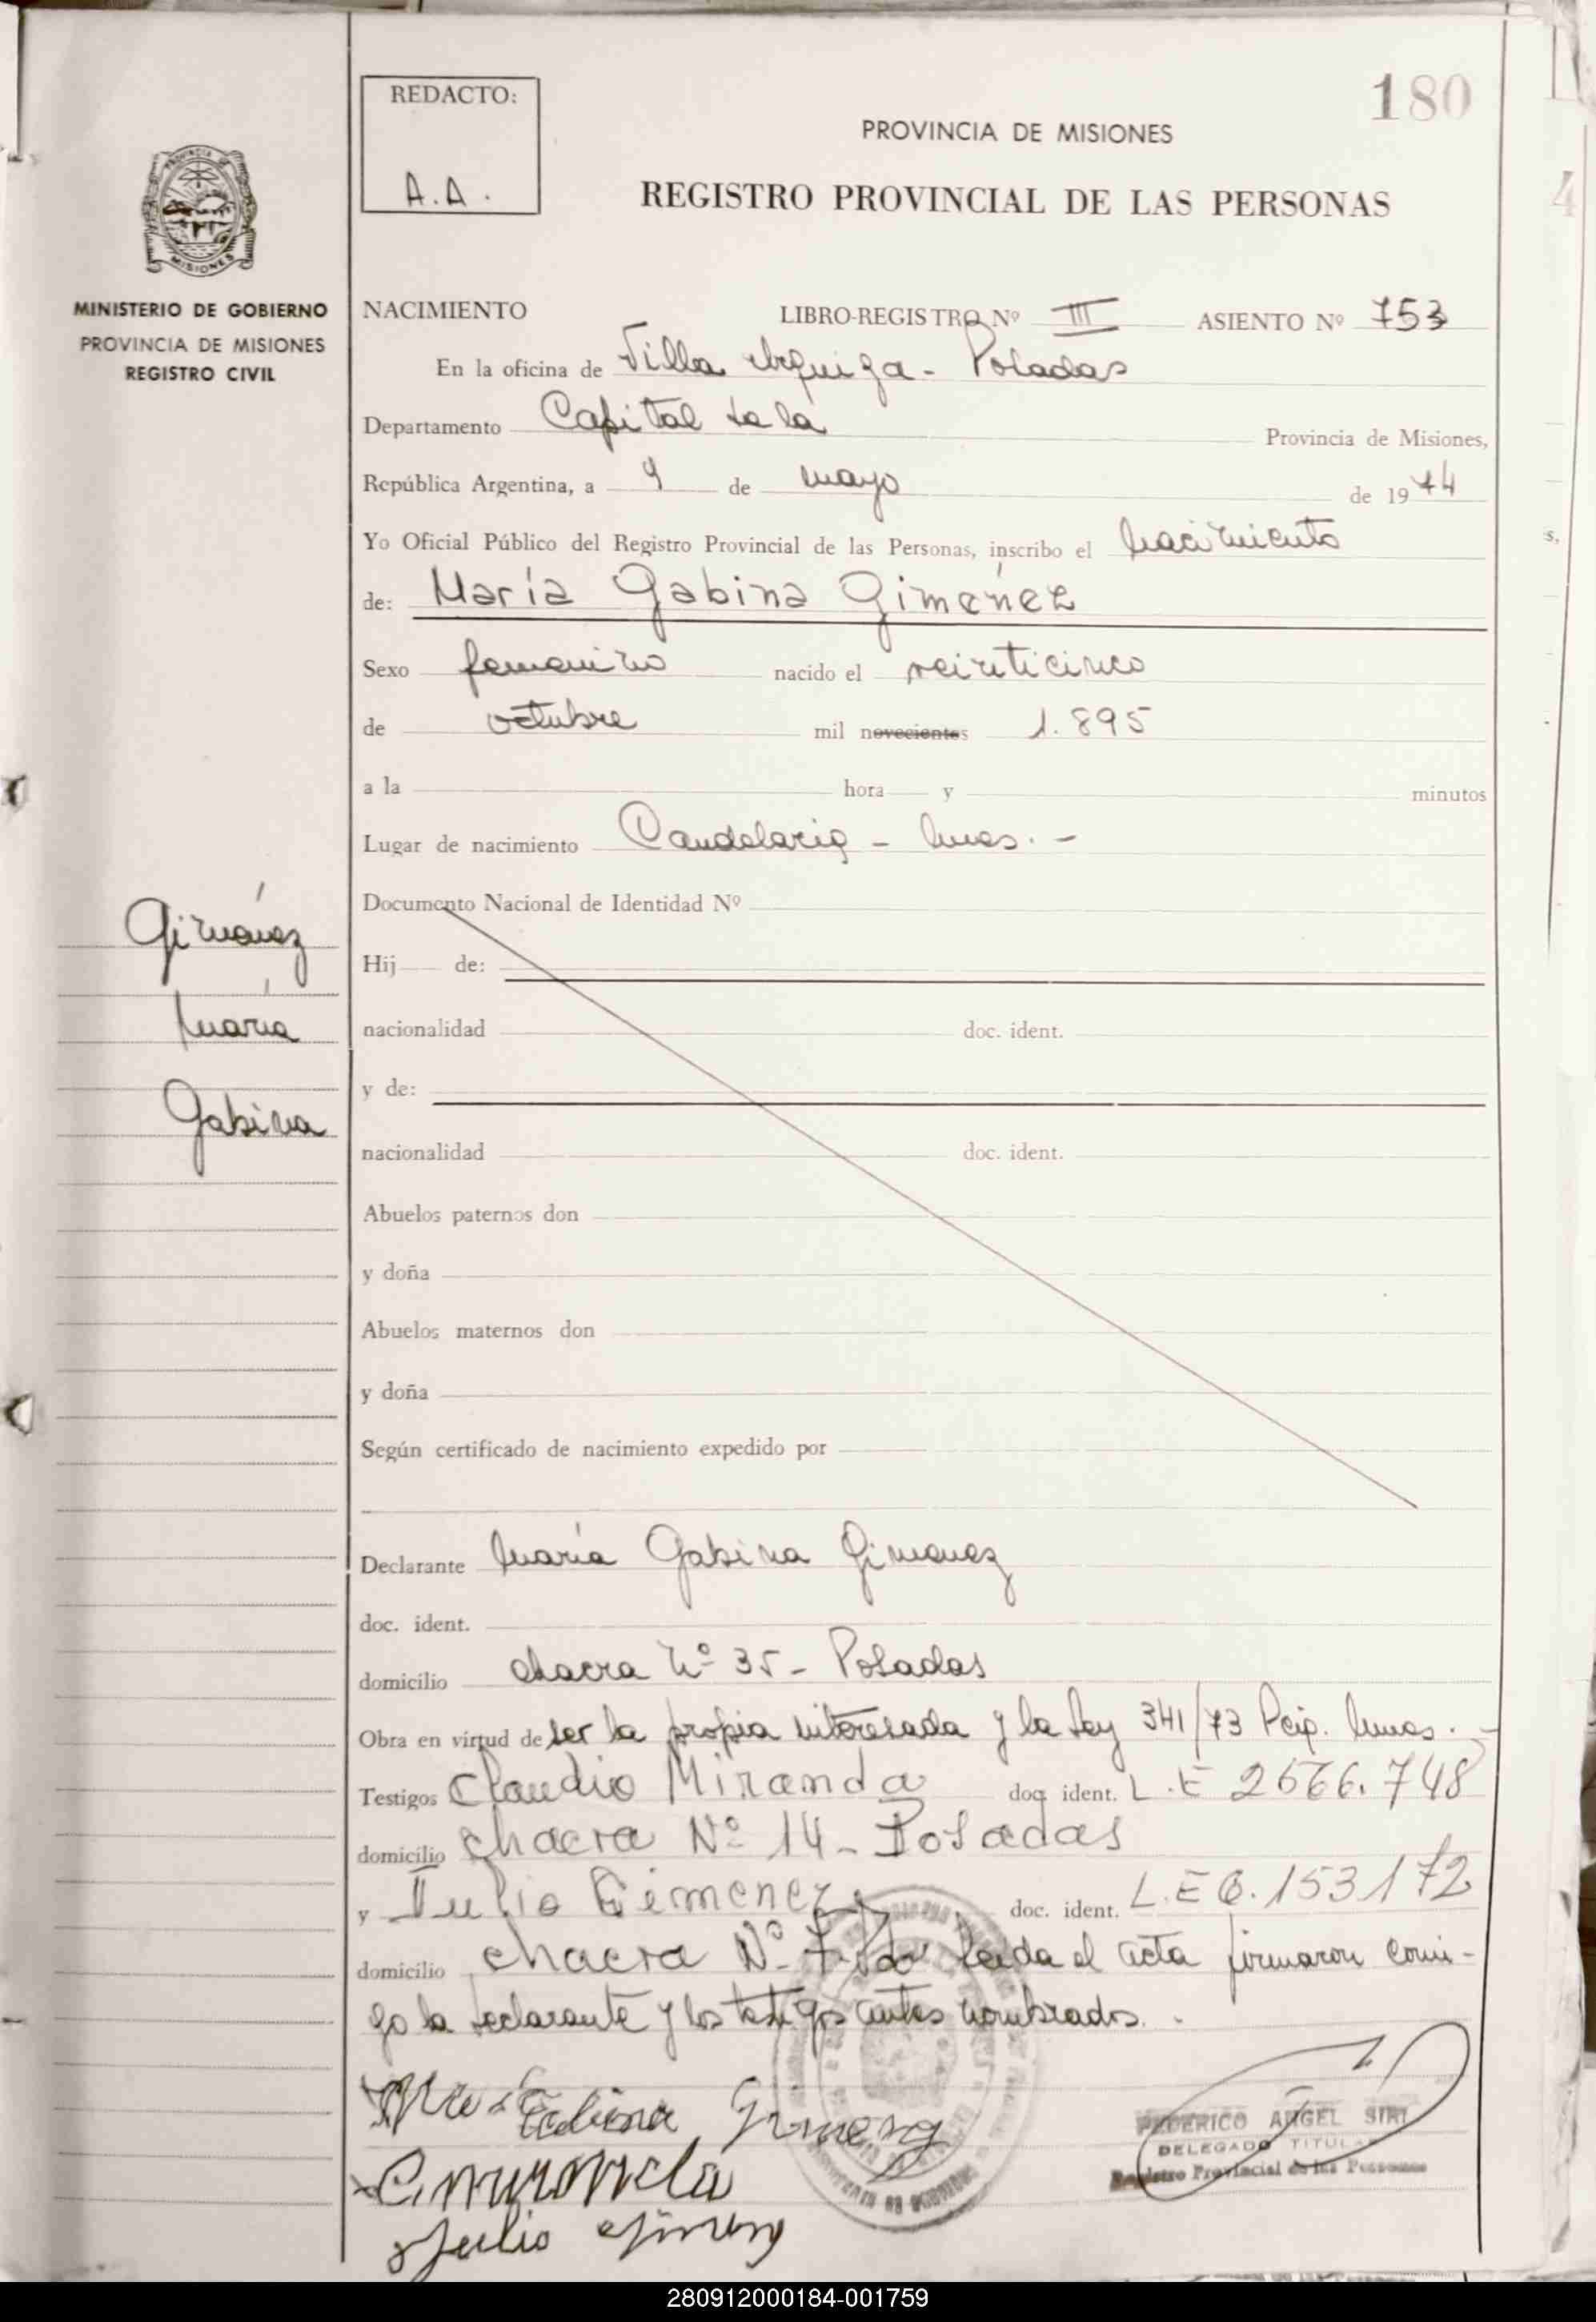 180
REDACTO:
A.A.
PROVINCIA DE MISIONES
REGISTRO PROVINCIAL DE LAS PERSONAS
MINISTERIO DE GOBIERNO
PROVINCIA DE MISIONES
REGISTRO CIVIL
NACIMIENTO LIBRO-REGISTRO Nº III ASIENTO Nº 753
En la oficina de Villa Urquiza - Posadas
Departamento Capital de la Provincia de Misiones,
República Argentina, a 9 de mayo de 1974
Yo Oficial Público del Registro Provincial de las Personas, inscribo el nacimiento
de: María Gabina Giménez
Sexo femenino nacido el veinticinco
de octubre mil novecientos 1.895
a la hora y minutos
Lugar de nacimiento Candelaria - Mnes. -
Documento Nacional de Identidad Nº
Giménez
María
Gabina
Hij de:
nacionalidad doc. ident.
y de:
nacionalidad doc. ident.
Abuelos paternos don
y doña
Abuelos maternos don
y doña
Según certificado de nacimiento expedido por
Declarante María Gabina Gimenez
doc. ident.
domicilio chacra Nº 35 - Posadas
Obra en virtud de ser la propia interesada y la Ley 341/73 Pcia. Mnes. -
Testigos Claudio Miranda doc. ident. L.E 2566.748
domicilio chacra Nº 14 - Posadas
y Julio Gimenez doc. ident. L.E 153172
domicilio chacra Nº leida el acta firmaron conmi-
go la declarante y los testigos antes nombrados. -
Gabina Gimenez
Julio Gimenez
FEDERICO ANGEL SIRI
DELEGADO TITULAR
Registro Provincial de las Personas
280912000184-001759